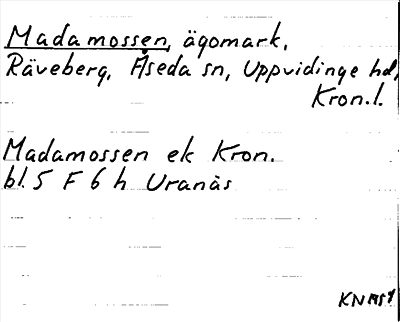 Madamossen, ägomark,
Räveberg, Åseda sn, Uppvidinge hd,
Kron. l.
Madamossen ek Kron.
bl. 5 F 6 h Uranäs